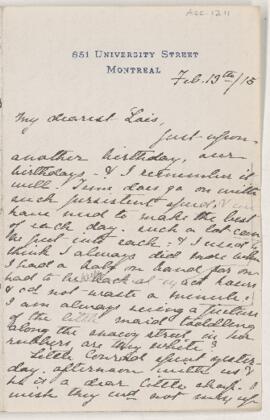 Acc-1211
851 UNIVERSITY STREET
MONTREAL
Feb. 13th/15
My dearest Lois,
Just upon
another birthday, our
birthdays - & I remember it
well. Time does go on with
such persistent speed, & we
have need to make the best
of each day. Such a lot can
be put into each. & I used to
think I always did more when
I had a baby on hand for one
had to be back at exact hours
& cd not waste a minute.
I am always seeing a picture
of the little maid toddling
along the snowy street in her
rubbers are they white?
Little Conrad spent yester-
day afternoon with us &
he is a dear little chap. I
wish they did not only up